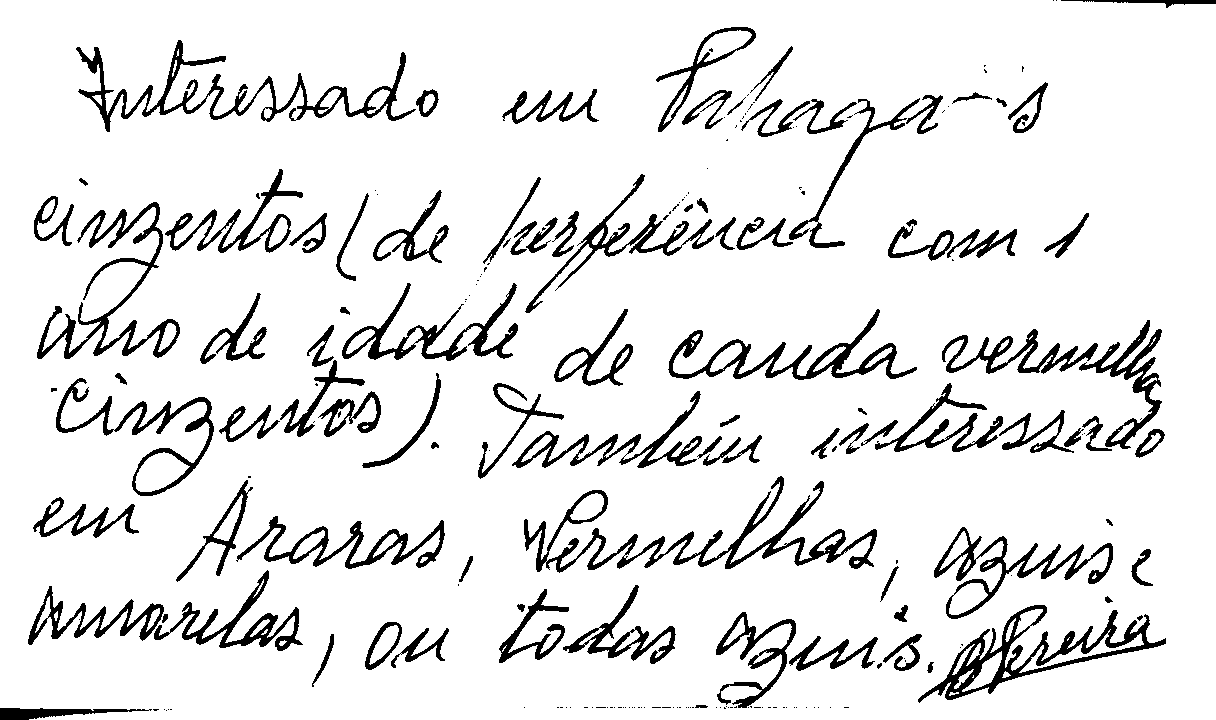 Interessado em Papagaios
cinzentos (de perferência com 1
ano de idade de cauda vermelha
cinzentos). Também interessado
em Araras, Vermelhas, azuis e
amarelas, ou todas azuis. BPereira